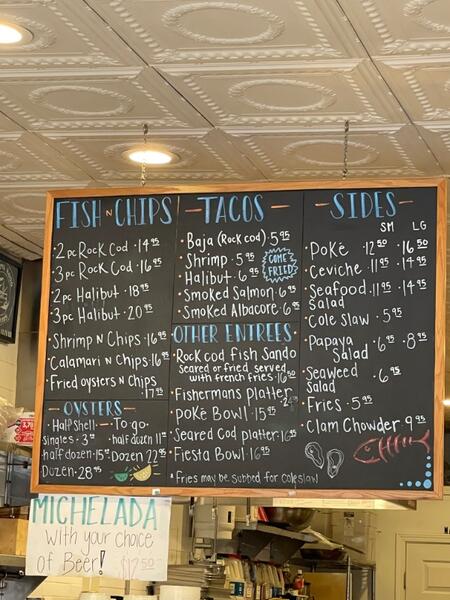 FISH N CHIPS
· 2 pc Rock Cod · 14 95
· 3 pc Rock Cod · 16 95
· 2 pc Halibut · 18 95
· 3 pc Halibut · 20 95
· Shrimp N Chips · 16 95
· Calamari N Chips · 16 95
· Fried oysters N Chips
· 17 95
- OYSTERS -
· Half Shell — · To go ·
singles · 3 half dozen 11
half dozen · 15 Dozen 22 95
Dozen · 28 95
- TACOS -
· Baja (Rock cod) 5 95
· Shrimp · 5 95
· Halibut · 6 95
COME FRIED
· Smoked Salmon · 6 95
· Smoked Albacore 6 95
OTHER ENTREES ·
· Rock cod fish Sando
seared or fried served
with french fries · 16 50
· Fishermans Platter
· Poke Bowl · 15 95
· Seared Cod platter · 16 95
· Fiesta Bowl · 16 95
* Fries may be subbed for coleslaw
- SIDES -
SM LG
· Poké · 12 50 · 16 50
· Ceviche · 11 95 · 14 95
· Seafood Salad · 11 95 · 14 95
· Cole Slaw · 5 95
· Papaya Salad · 6 95 · 8 95
· Seaweed Salad · 6 95
· Fries · 5 95
· Clam Chowder 9 95
MICHELADA
with your choice
of Beer! $17 50